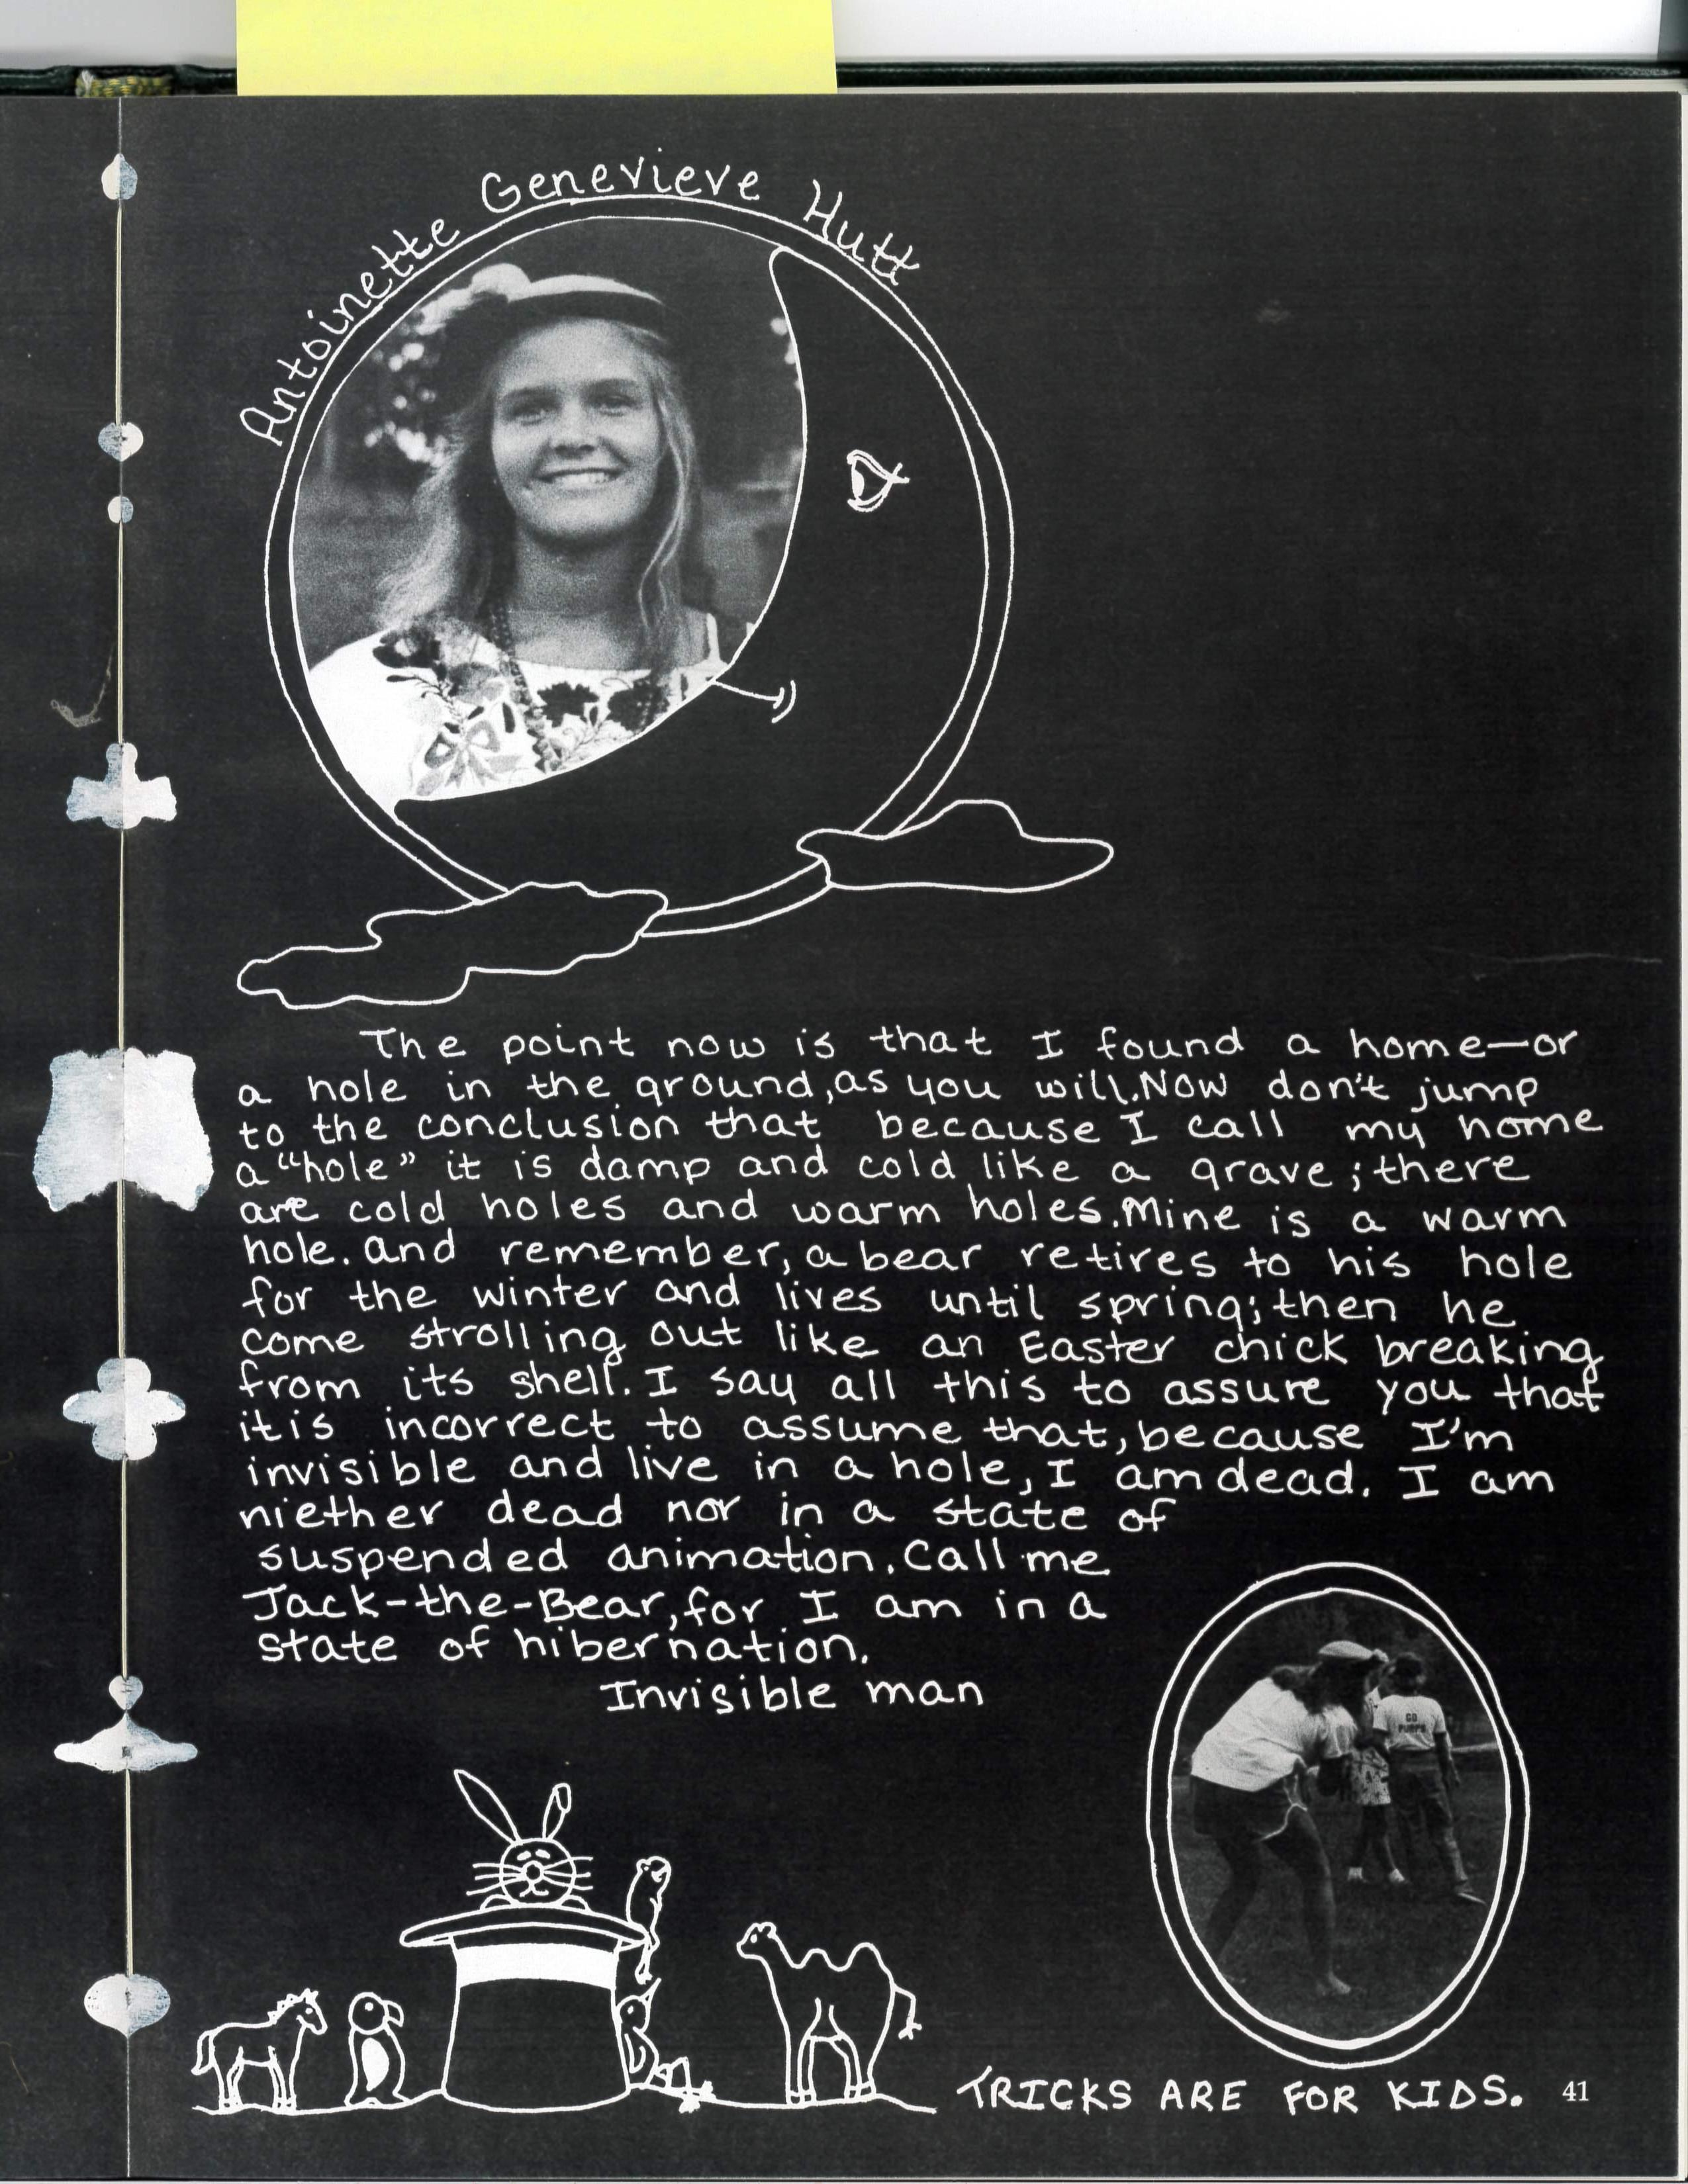 Antoinette Genevieve Hutt
The point now is that I found a home—or
a hole in the ground, as you will. Now don't jump
to the conclusion that because I call my home
a "hole" it is damp and cold like a grave; there
are cold holes and warm holes. Mine is a warm
hole. And remember, a bear retires to his hole
for the winter and lives until spring; then he
come strolling out like an Easter chick breaking
from its shell. I say all this to assure you that
it is incorrect to assume that, because I'm
invisible and live in a hole, I am dead. I am
niether dead nor in a state of
suspended animation. Call me
Jack-the-Bear, for I am in a
state of hibernation.
Invisible man
GO
TRICKS ARE FOR KIDS. 41